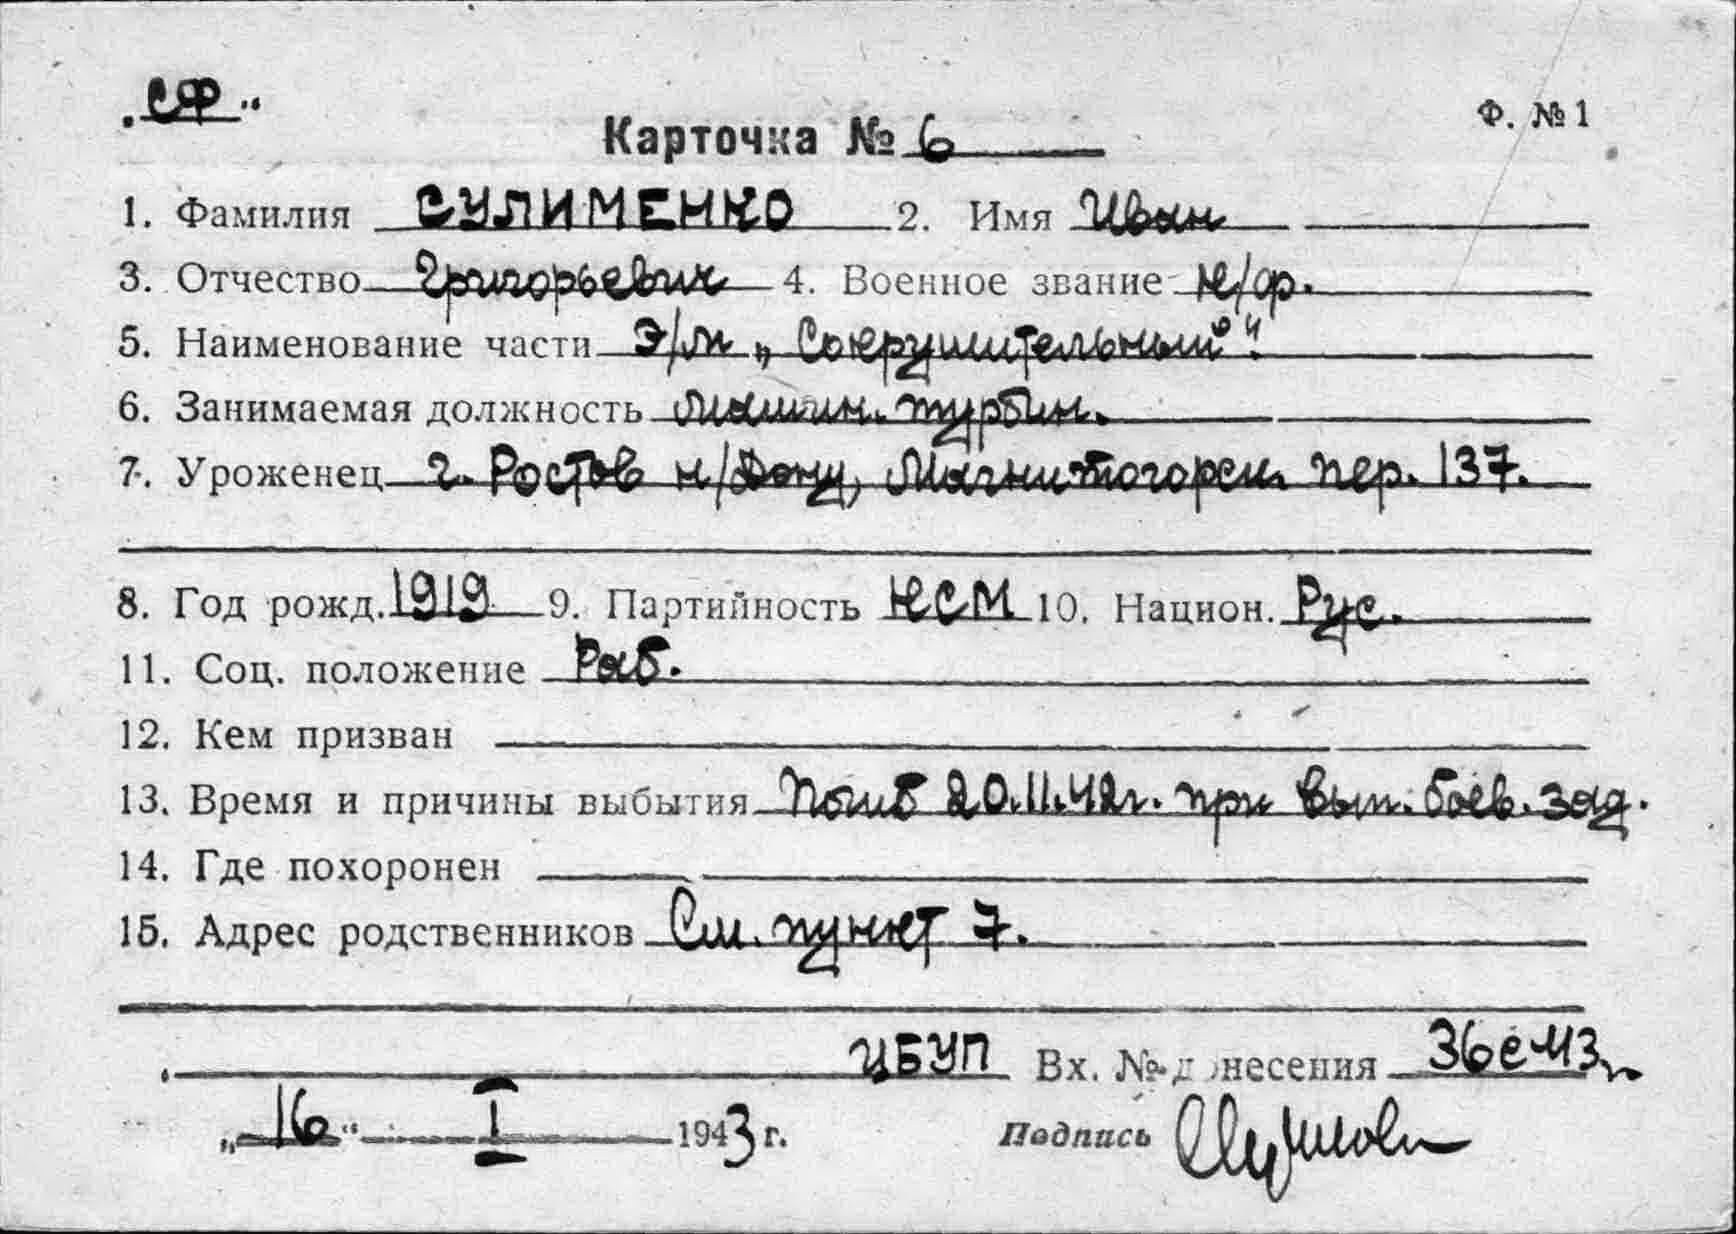 „СФ"
Ф. № 1
Карточка № 6
1. Фамилия СУЛИМЕНКО 2. Имя Иван
3. Отчество Григорьевич 4. Военное звание к/ф.
5. Наименование части Э/м „Сокрушительный".
6. Занимаемая должность Машин. турбин.
7. Уроженец г. Ростов н/Дону, Магнитогорск. пер. 137.
8. Год рожд. 1919 9. Партийность КСМ 10. Национ. Рус.
11. Соц. положение Раб.
12. Кем призван
13. Время и причины выбытия Погиб 20.11.42г. при вып. боев. зад.
14. Где похоронен
15. Адрес родственников См. пункт 7.
ЦБУП Вх. № донесения 36с-43г
„16" I 1943 г. Подпись